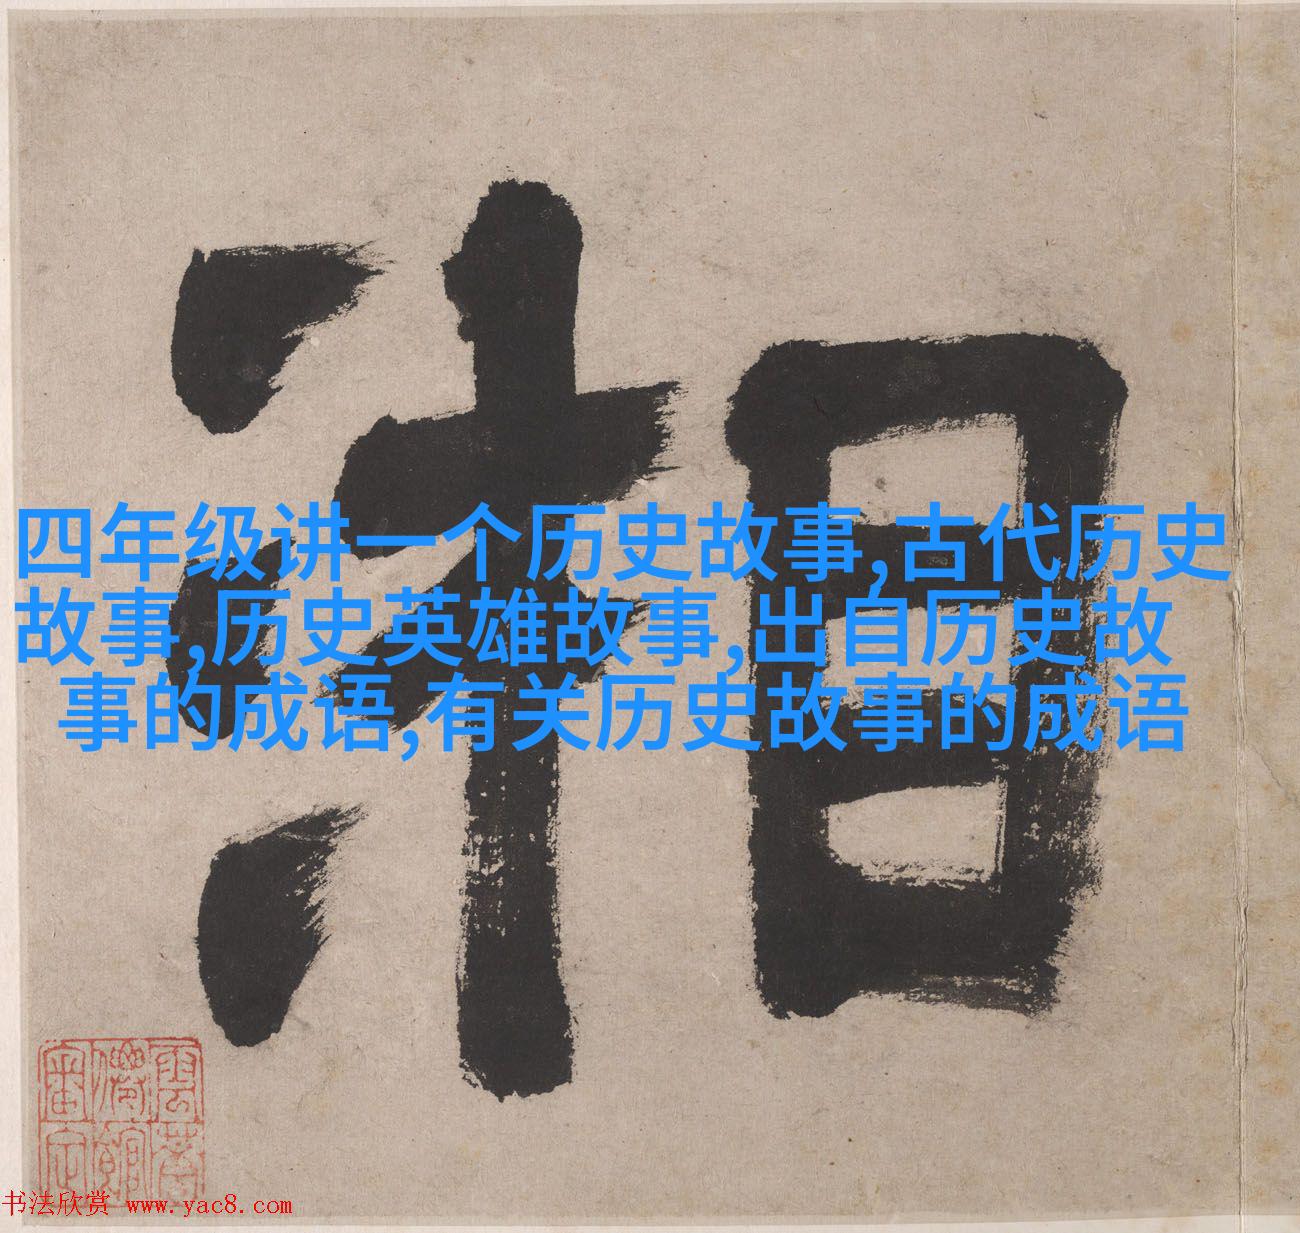 湘
四年级讲一个历史故事,古代历史
故事,历史英雄故事,出自历史故
事的成语,有关历史故事的成语
书法欣赏 www.yac8.com